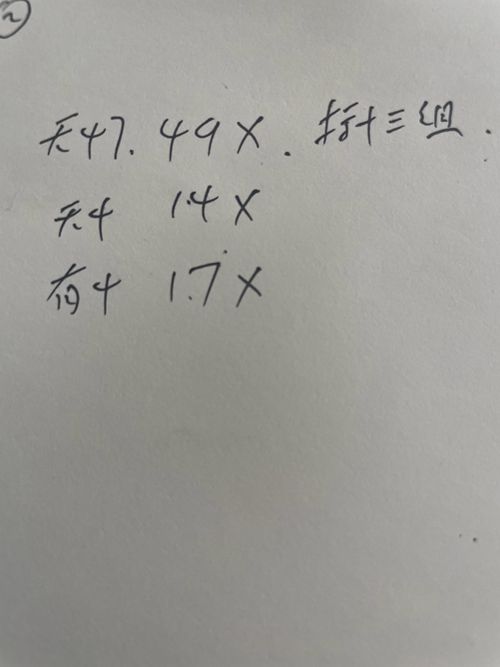 ②
无47. 49X. 打三组.
无4 1.4X
有4 1.7X